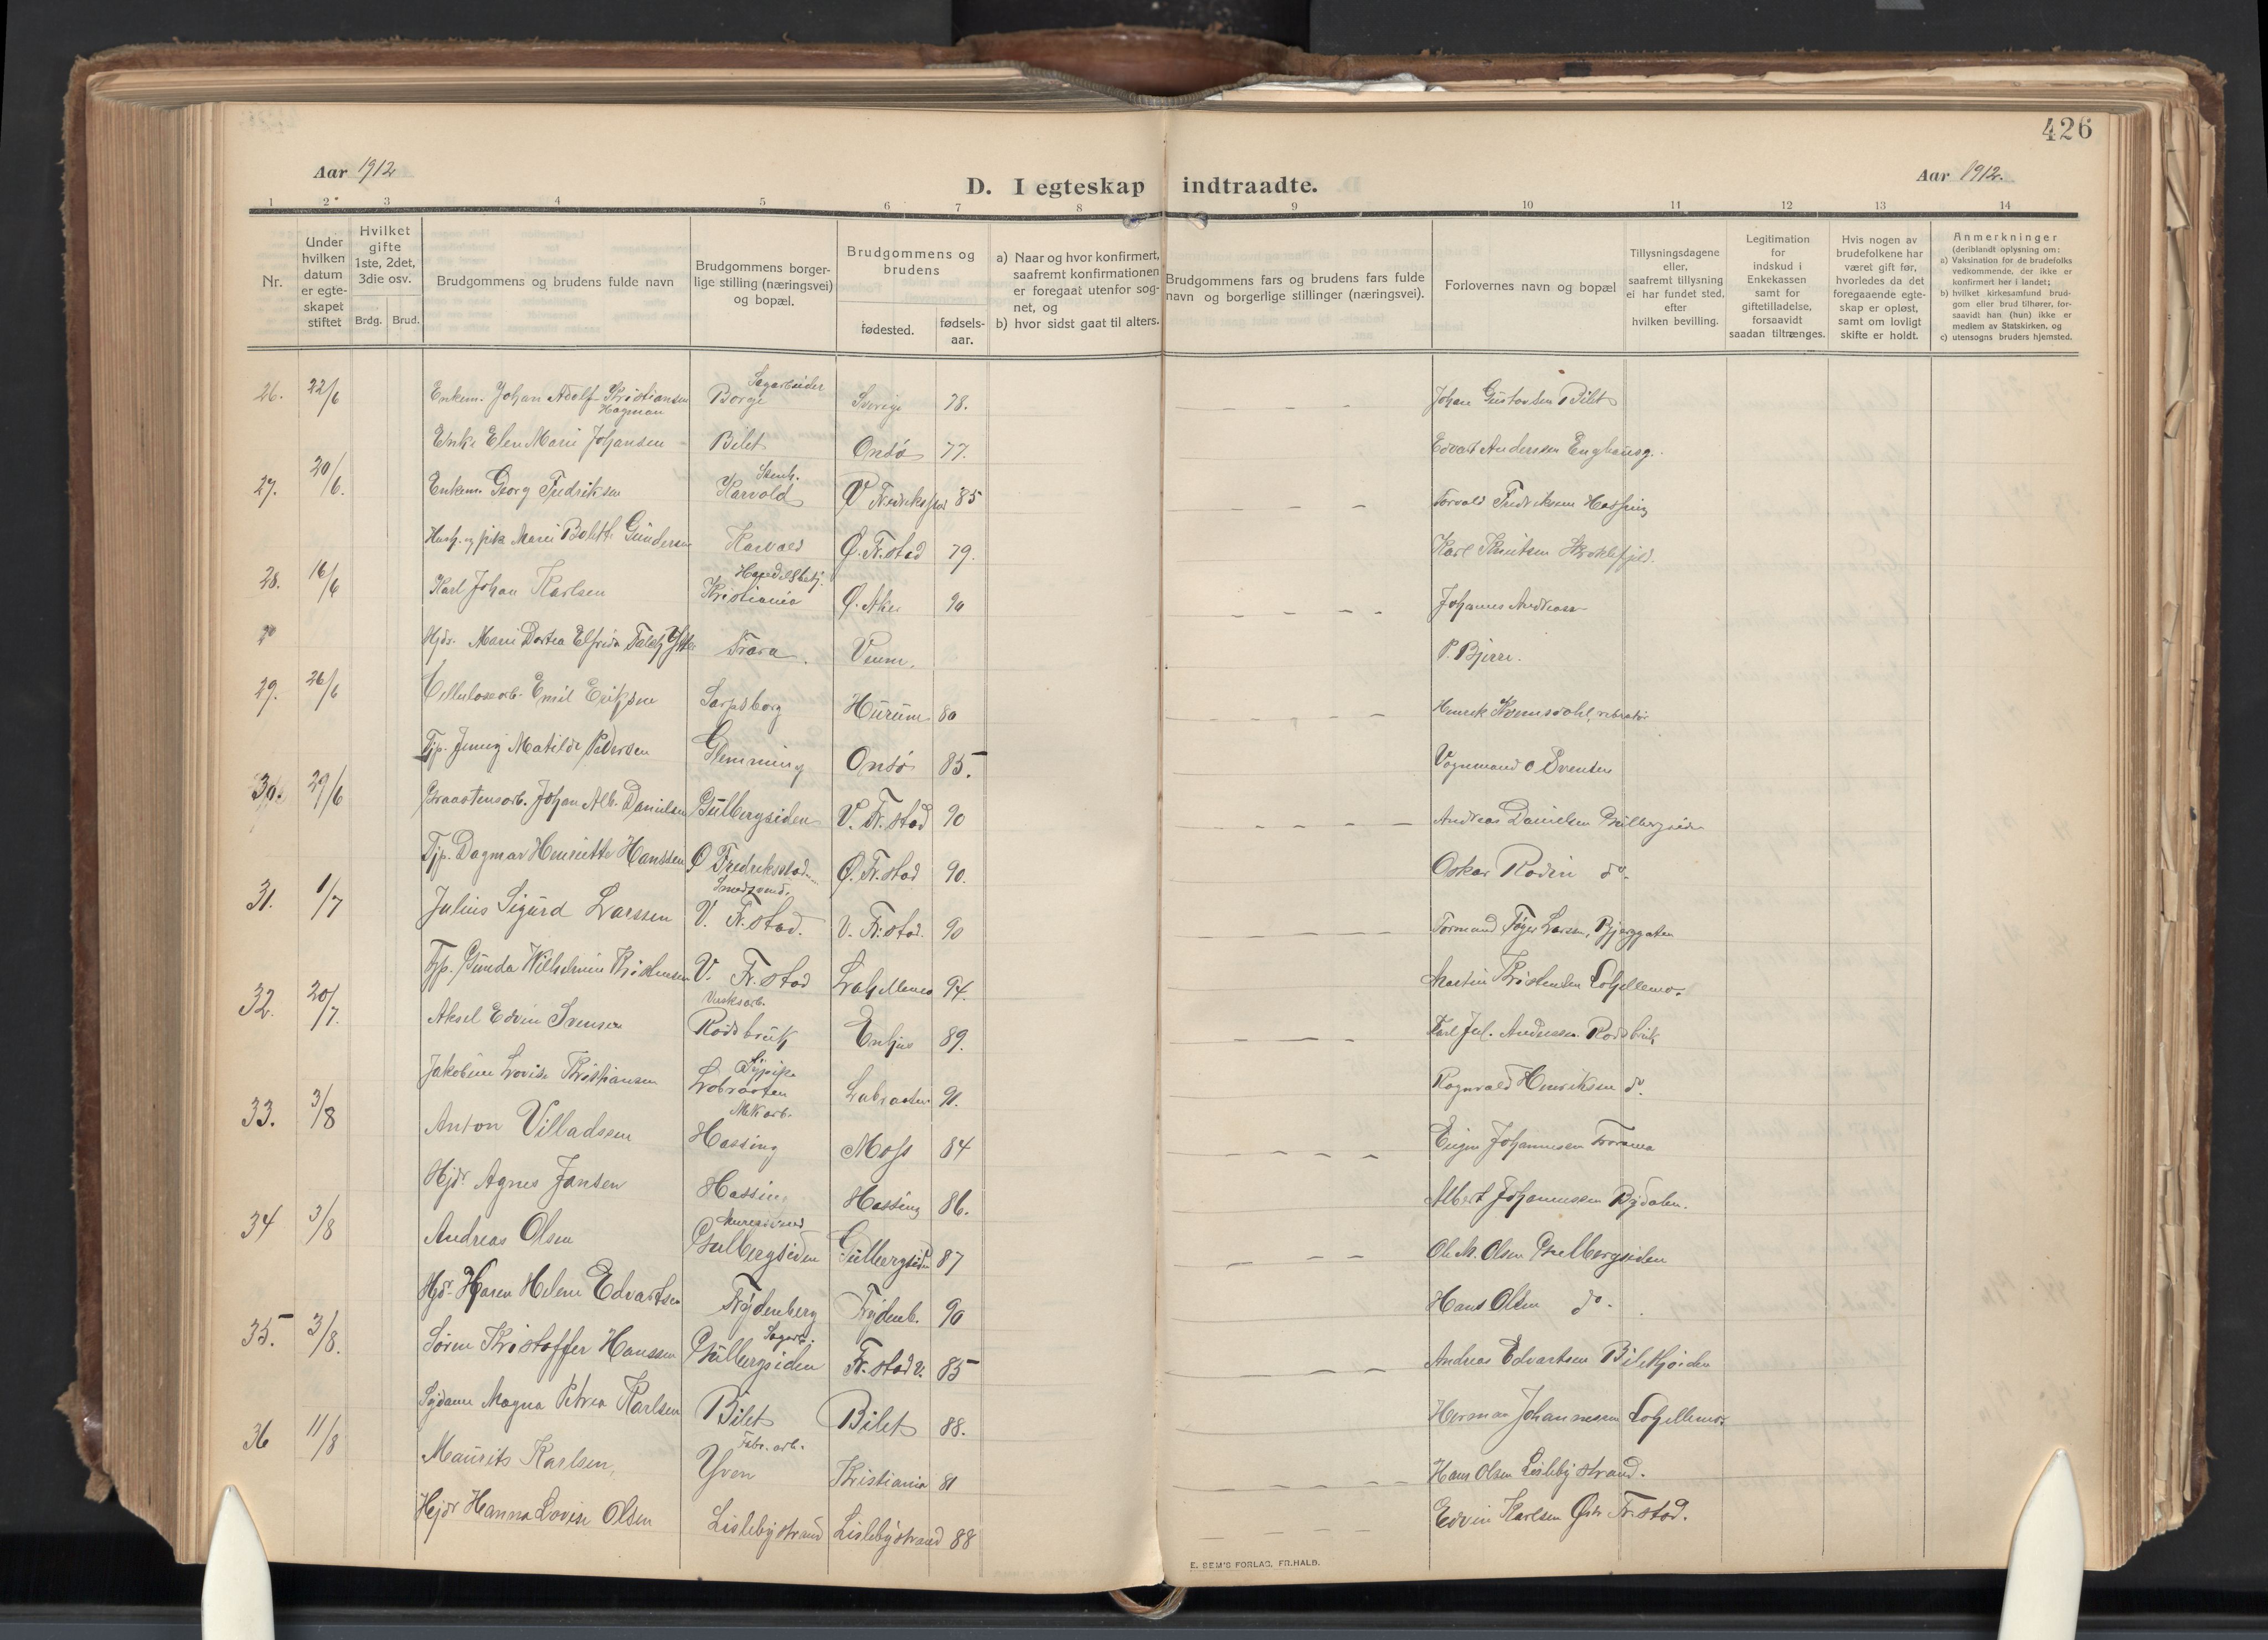 426
Aar 1912
D. I egteskap indtraadte.
Aar 1912.
1 2 3 4 5 6 7 8 9 10 11 12 13 14
Nr.
Under hvilken datum er egteskapet stiftet
Hvilket gifte 1ste, 2det, 3die osv.
Brdg. Brud.
Brudgommens og brudens fulde navn
Brudgommens borgerlige stilling (næringsvei) og bopæl.
Brudgommens og brudens
fødested.
fødselsaar.
a) Naar og hvor konfirmert, saafremt konfirmationen er foregaat utenfor sognet, og
b) hvor sidst gaat til alters.
Brudgommens fars og brudens fars fulde navn og borgerlige stillinger (næringsvei).
Forlovernes navn og bopæl
Tillysningsdagene eller, saafremt tillysning ei har fundet sted, efter hvilken bevilling.
Legitimation for indskud i Enkekassen samt for giftetilladelse, forsaavidt saadan tiltrænges.
Hvis nogen av brudefolkene har været gift før, hvorledes da det foregaaende egteskap er opløst, samt om lovligt skifte er holdt.
Anmerkninger
(deriblandt oplysning om:
a) Vaksination for de brudefolks vedkommende, der ikke er konfirmert her i landet;
b) hvilket kirkesamfund brudgom eller brud tilhører, forsaavidt han (hun) ikke er medlem av Statskirken, og
c) utensogns bruders hjemsted.
26. 22/6 Enkem. Johan Adolf Kristiansen Hagman Sagarbeider Borge Sverige 78. Johan Gustavsen Bilet
Enke Elen Marie Johansen Bilet Onsø 77. Edvart Anderssen Enghausg.
27. 20/6. Enkem. Georg Fredriksen Stenh. Karvold V Fredriksstad 85 Torvald Fredriksen Hassing
Hush. og pike Marie Bolette Gundersen Karvold Ø. Fr.stad 79. Karl Knutsen
28. 16/6 Karl Johan Karlsen Handelsbetj. Kristiania Ø. Aker 90 Johannes Andreassen
Hjds. Marie Dortea Elfrida Trara. Veum. P. Bjerre.
29. 26/6 Cellulosearb. Emil Eriksen Sarpsborg Hurum 80 Henrik
Tjp. Jenny Matilde Pedersen Glemming Onsø 85. Vognmand O Svendsen
30. 29/6 Graastensarb. Johan Alb. Danielsen Gulbergsiden V. Fr.stad 90 Andreas Danielsen Gulbergsiden
Tjp. Dagmar Henriette Hanssen Ø Fredriksstad Ø. Fr.stad 90. Oskar Rodin do.
31. 1/7 Julius Sigurd Larssen Smedsvend. V. Fr.stad. V. Fr.stad. 90 Formand Larsen, Bjerggaten
Tjp. Gunda Wilhelmine Kristensen V. Fr.stad Lahellemoen 94. Martin Kristensen Lahellemo.
32. 20/7. Aksel Edvin Svensen Verksarb. Rodsbruk Enhjus 89. Karl Jul. Andersen Rodsbruk
Jakobine Lovise Kristiansen Sypike Labraaten Labraaten 91. Ragnvald Henriksen do.
33. 3/8 Anton Villadssen Mek arb. Hassing Moss 84 Eugen Johannesen
Hjds. Agnes Jansen Hassing Hassing 86. Albert Johannessen Bydalen.
34 3/8 Andreas Olsen Murersvend Gulbergsiden Gulbergsiden 87 Ole M. Olsen Gulbergsiden
Hjds. Karen Helene Edvartsen Frydenberg Frydenb. 90 Hans Olsen do.
35. 3/8. Søren Kristoffer Hanssen Sagarb. Gulbergsiden Fr.stad v. 85 Andreas Edvartsen
Sydame Magna Petrea Karlsen Bilet Bilet 88. Herman Johannesen Lahellemo.
36 11/8 Maurits Karlsen, Fabr. arb. Yven Kristiania 81 Hans Olsen Lislebystrand.
Hjds Hanna Lovise Olsen Lislebystrand Lislebystrand 88 Edvin Karlsen Østr Fr.stad.
E. SEM'S FORLAG, FR.HALD.